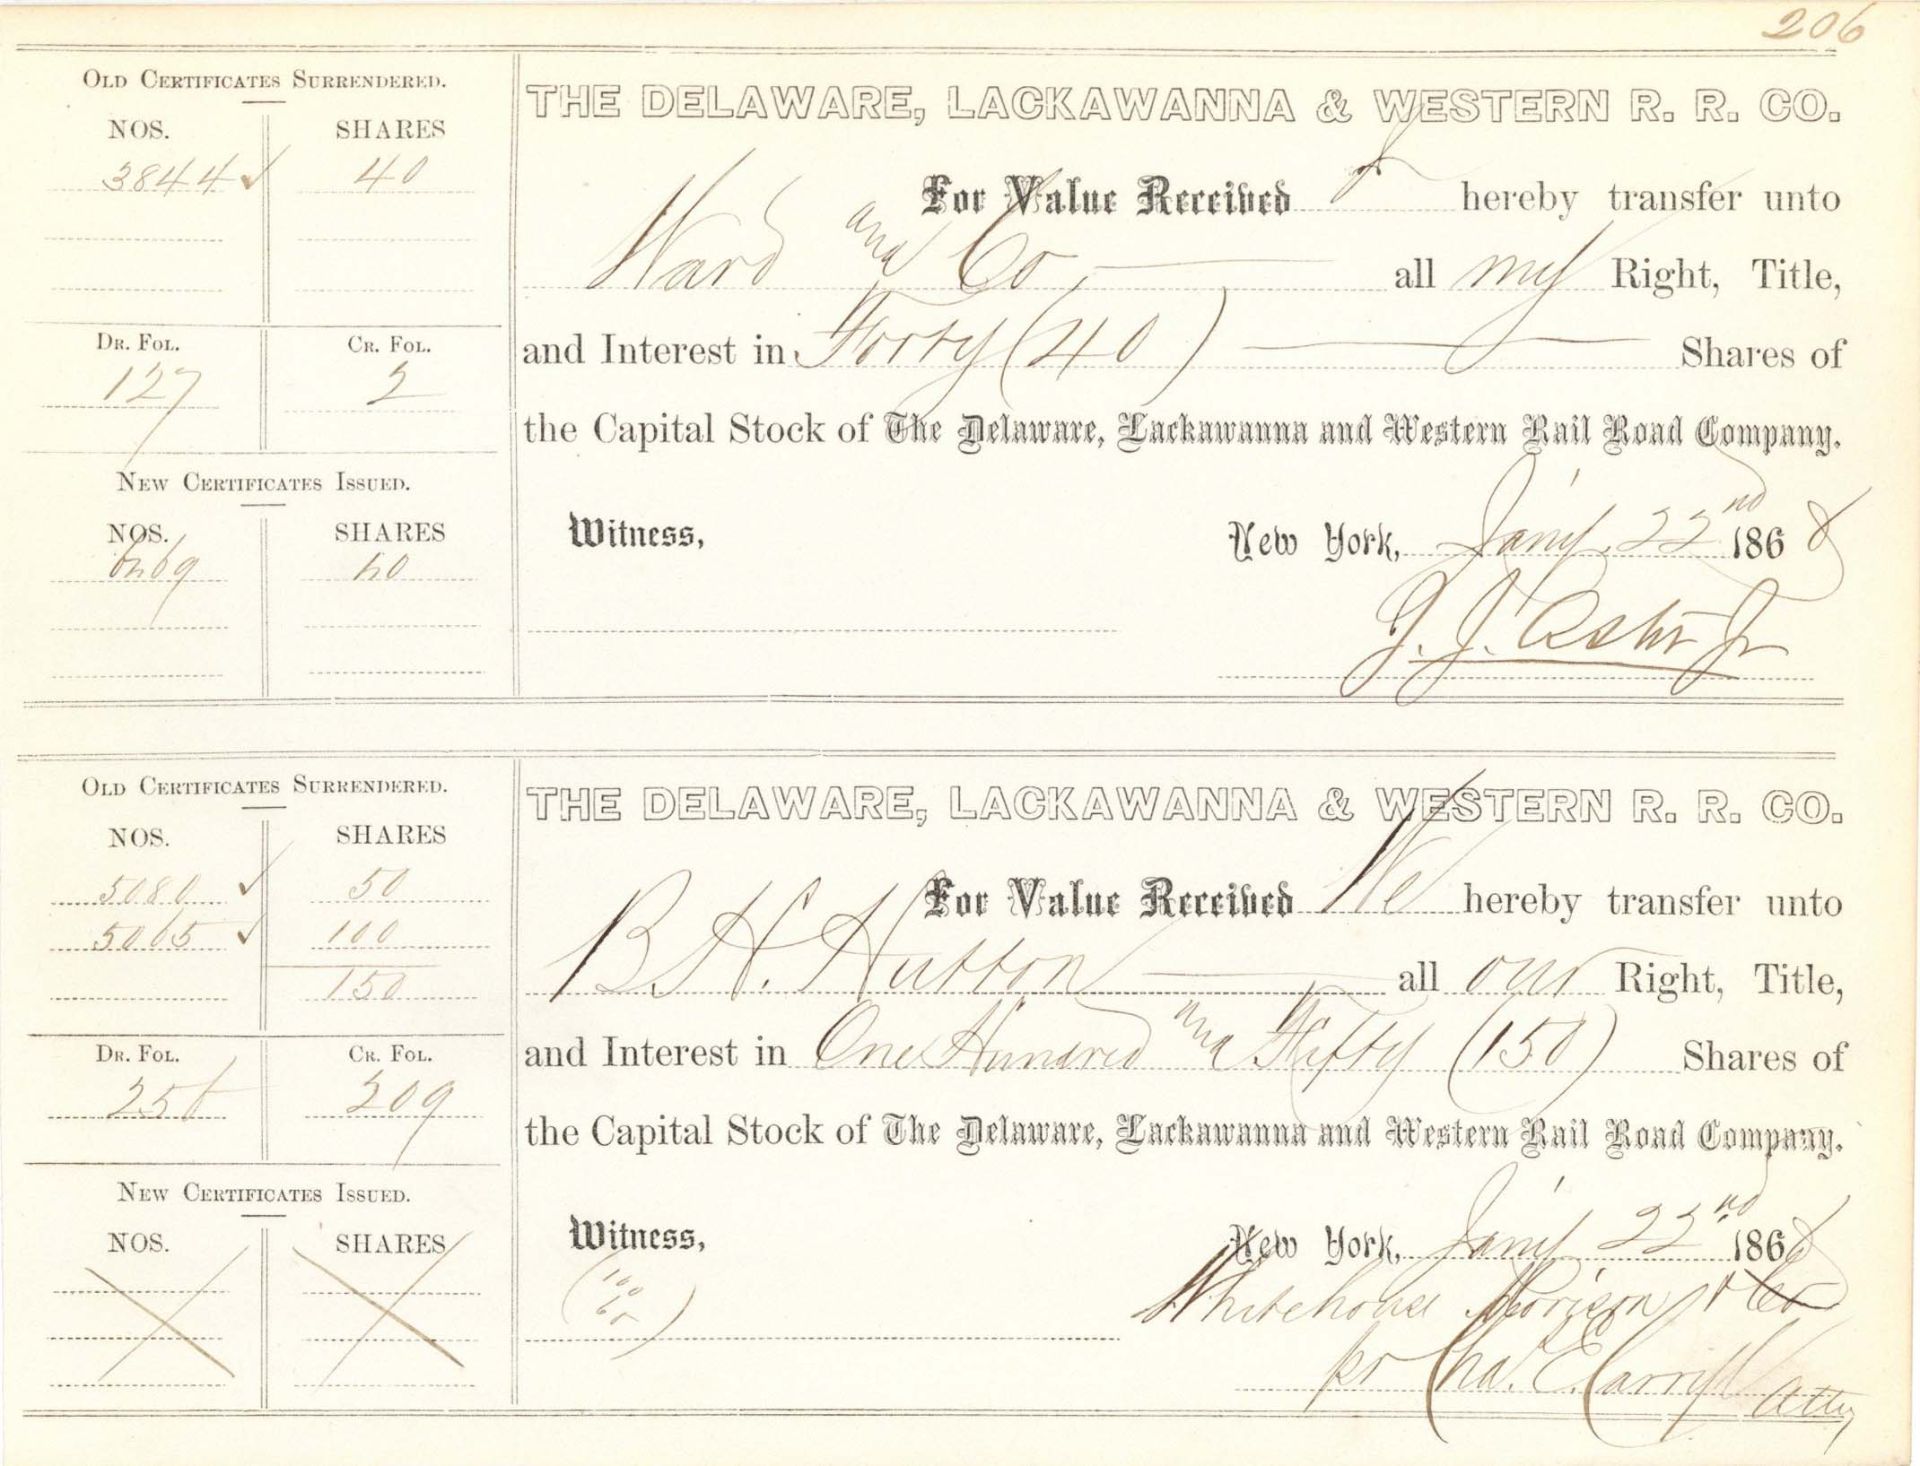 206
OLD CERTIFICATES SURRENDERED.
NOS. SHARES
3844 ✓ 40
DR. FOL. CR. FOL.
127 2
NEW CERTIFICATES ISSUED.
NOS. SHARES
40
THE DELAWARE, LACKAWANNA & WESTERN R. R. CO.
For Value Received I hereby transfer unto
Ward and Co. all my Right, Title,
and Interest in Forty (40) Shares of
the Capital Stock of The Delaware, Lackawanna and Western Rail Road Company.
Witness, New York, Jany. 22nd 1868
J. J. Astor Jr
OLD CERTIFICATES SURRENDERED.
NOS. SHARES
5080 ✓ 50
✓ 100
150
DR. FOL. CR. FOL.
256 209
NEW CERTIFICATES ISSUED.
NOS. SHARES
THE DELAWARE, LACKAWANNA & WESTERN R. R. CO.
For Value Received We hereby transfer unto
B. H. Hutton all our Right, Title,
and Interest in One Hundred and Fifty (150) Shares of
the Capital Stock of The Delaware, Lackawanna and Western Rail Road Company.
Witness, New York, Jany 22nd 1868
Whitehouse Morison & Co
pr Chas. E. Atty